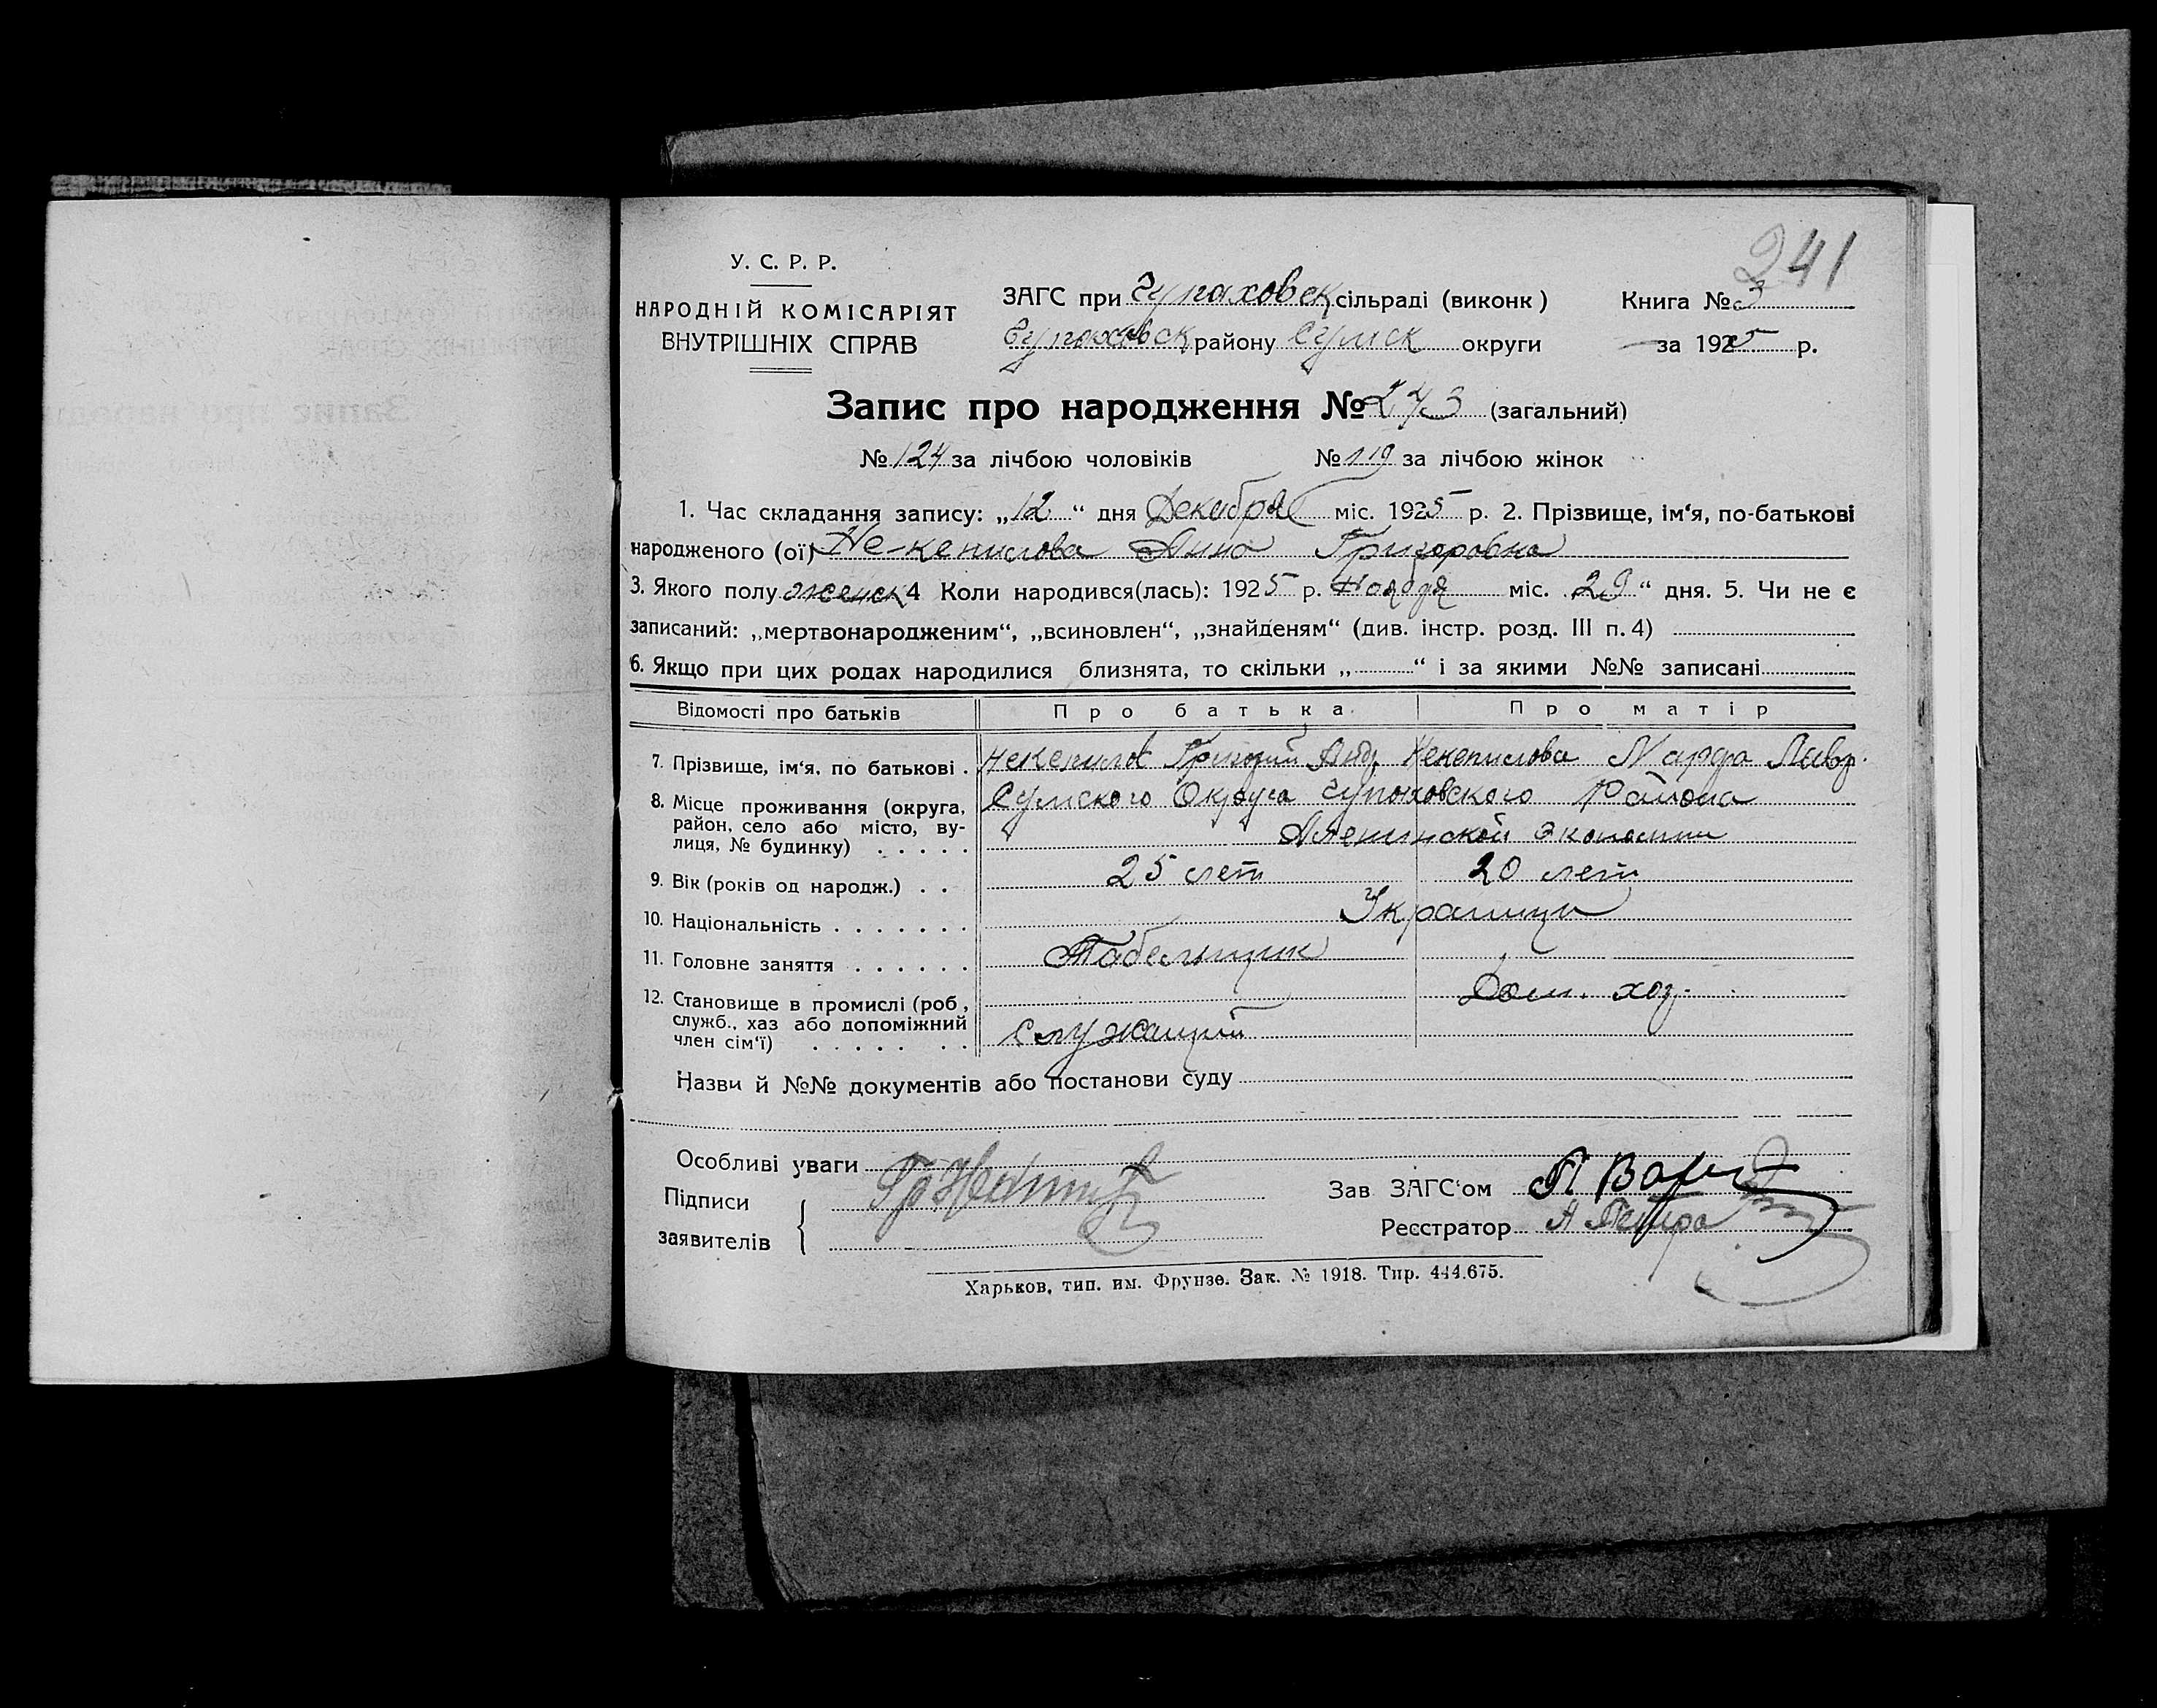 241
У. С. Р. Р.
НАРОДНІЙ КОМІСАРІЯТ
ВНУТРІШНІХ СПРАВ
ЗАГС при Чупаховск сільраді (виконк)
Чупаховск району Сумск округи
Книга № 3
за 1925 р.
Запис про народження № 243 (загальний)
№ 124 за лічбою чоловіків № 119 за лічбою жінок
1. Час складання запису: „12“ дня Декабря міс. 1925 р. 2. Прізвище, ім‘я, по-батькові
народженого (ої) Не-кепилова Анна Григоровна
3. Якого полу женск 4 Коли народився(лась): 1925 р. Ноября міс. 29“ дня. 5. Чи не є
записаний: „мертвонародженим“, „всиновлен“, „знайденям“ (див. інстр. розд. III п. 4)
6. Якщо при цих родах народилися близнята, то скільки „ “ і за якими №№ записані
Відомості про батьків Про батька Про матір
7. Прізвище, ім‘я, по батькові . Некепилов Григорий Анд. Некепилова Марфа
8. Місце проживання (округа, Сумского Округа Чупаховского Района
район, село або місто, ву-
лиця, № будинку) . . . . . Алешинской Экономии
9. Вік (років од народж.) . . 25 лет 20 лет
10. Національність . . . . . . . Украинцы
11. Головне заняття . . . . . . Табельщик
12. Становище в промислі (роб., Дом. хоз.
служб., хаз або допоміжний
член сім‘ї) . . . . . . . Служащий
Назви й №№ документів або постанови суду
Особливі уваги
Підписи
заявителів
Зав ЗАГС‘ом
Реєстратор
Харьков, тип. им. Фрунзе. Зак. № 1918. Тир. 444.675.